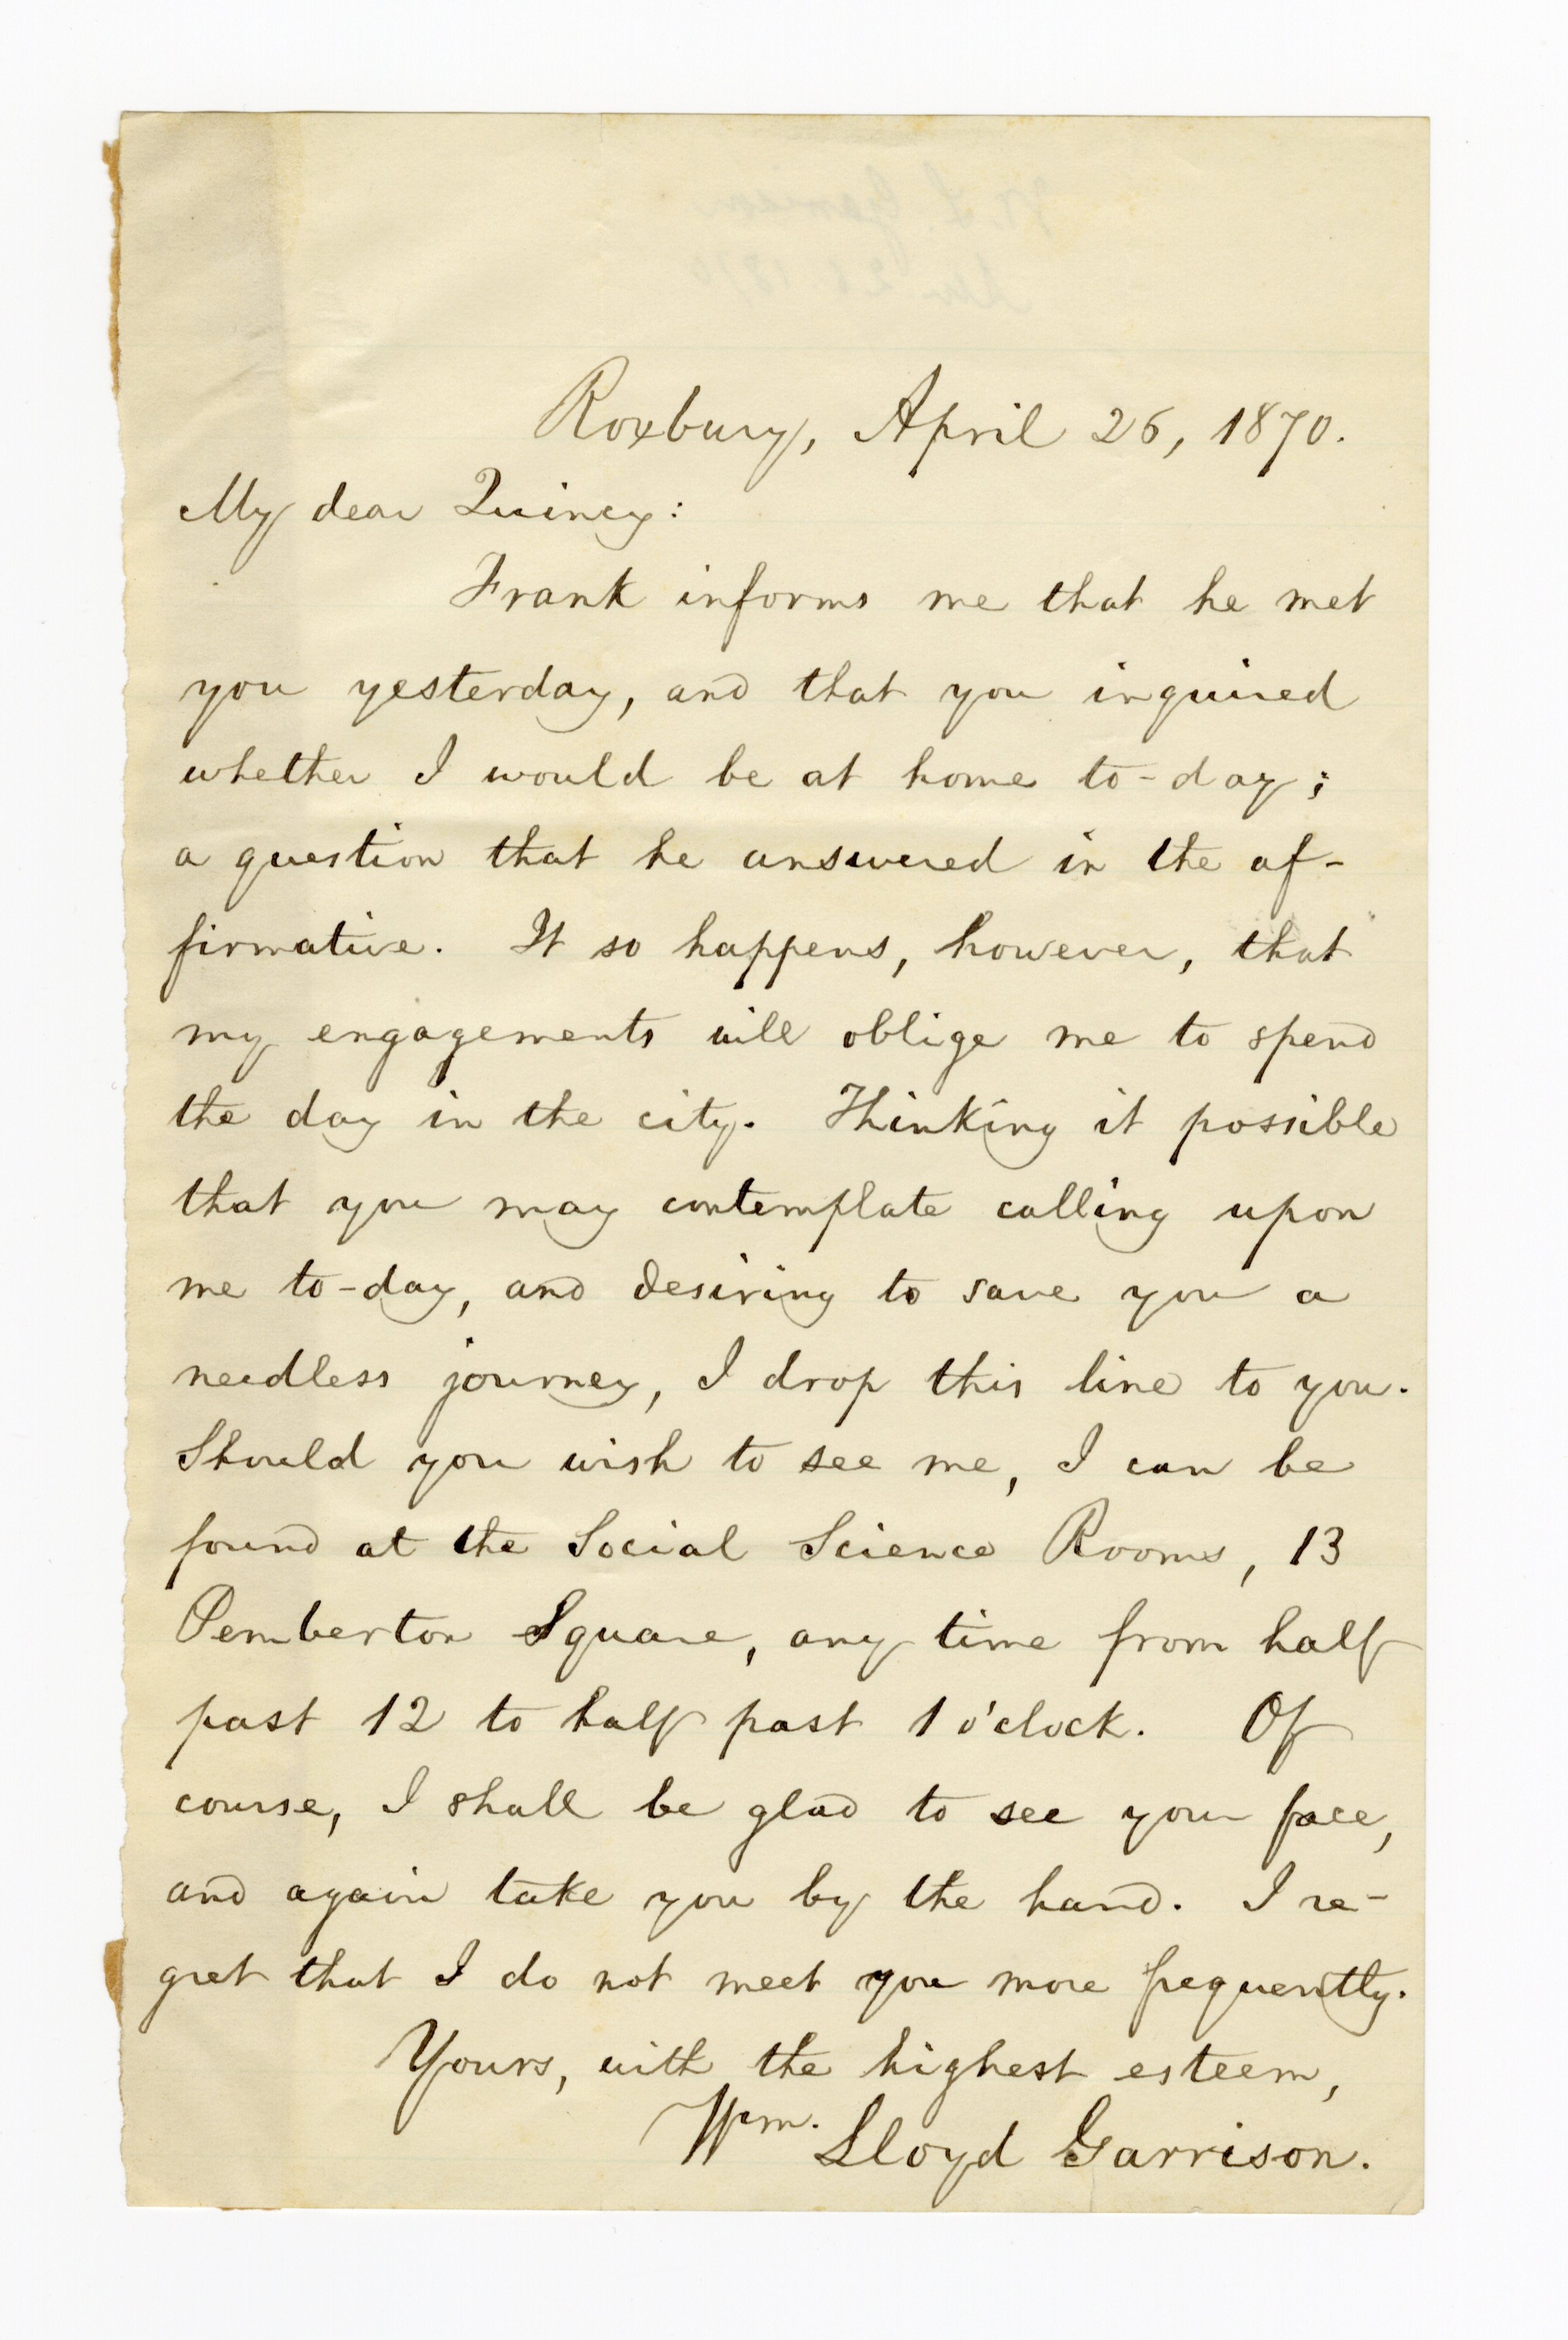 Roxbury, April 26, 1870.
My dear Quincy:
Frank informs me that he met
you yesterday, and that you inquired
whether I would be at home to-day;
a question that he answered in the af-
firmative. It so happens, however, that
my engagements will oblige me to spend
the day in the city. Thinking it possible
that you may contemplate calling upon
me to-day, and desiring to save you a
needless journey, I drop this line to you.
Should you wish to see me, I can be
found at the Social Science Rooms, 13
Pemberton Square, any time from half
past 12 to half past 1 o'clock. Of
course, I shall be glad to see your face,
and again take you by the hand. I re-
gret that I do not meet you more frequently.
Yours, with the highest esteem,
Wm. Lloyd Garrison.